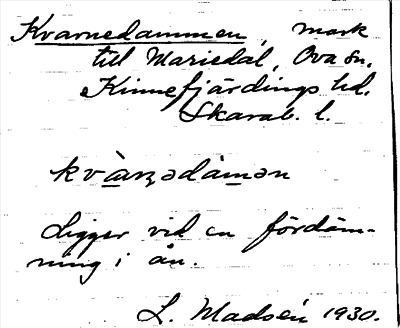 Kvarnedammen, mark
till Mariedal, Ova sn,
Kinnefjärdings hd.
Skarab. l.
kvà̱rn̥ədà̱mən
Ligger vid en fördäm-
ning i ån.
L. Madsén 1930.